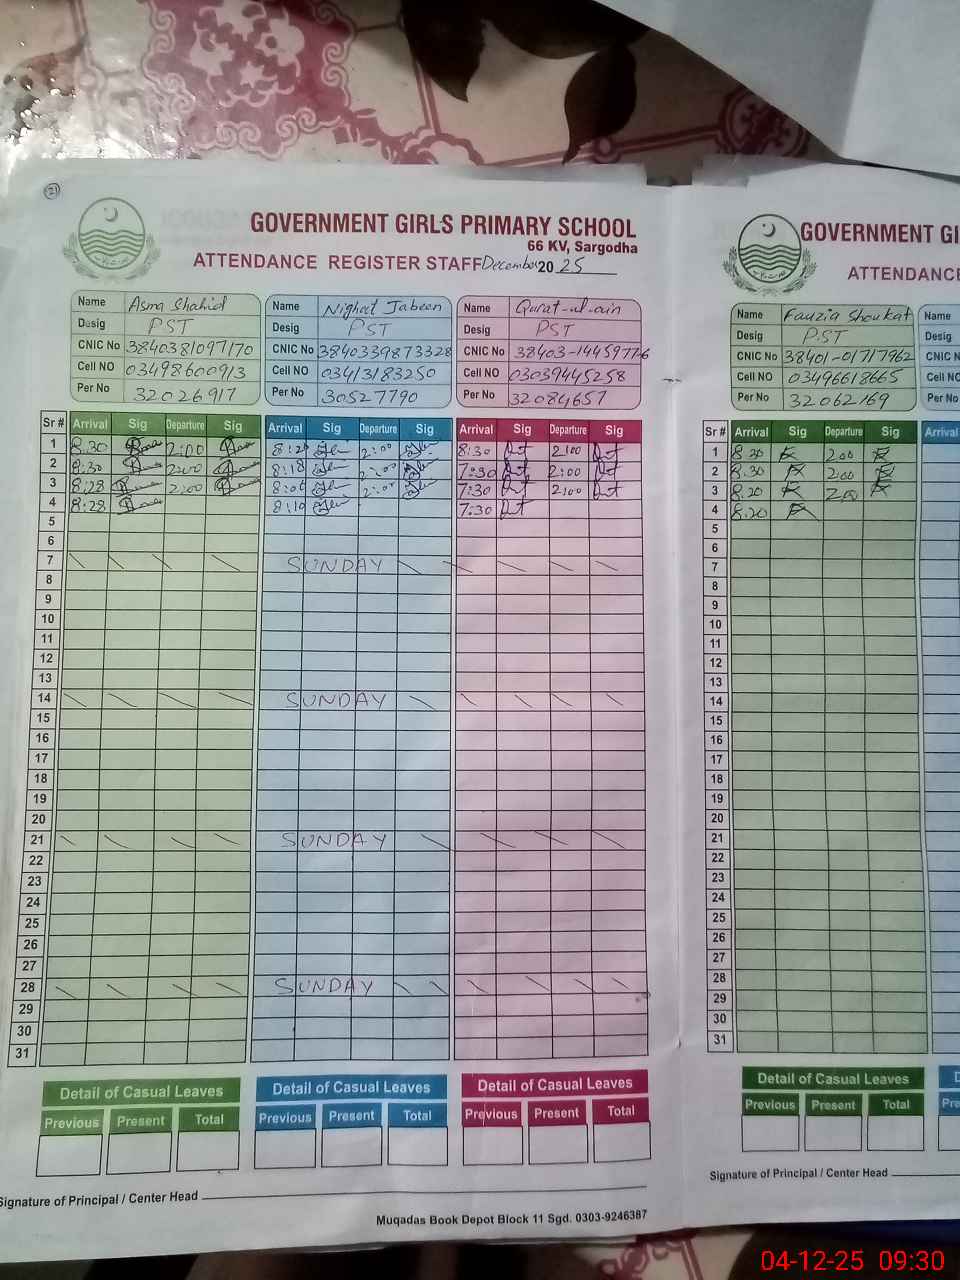 21
GOVERNMENT GIRLS PRIMARY SCHOOL
66 KV, Sargodha
ATTENDANCE REGISTER STAFF December 2025
Name Asma Shahid
Desig PST
CNIC No 3840381097170
Cell NO 03498600913
Per No 32026917
Name Nighat Jabeen
Desig PST
CNIC No 3840339873328
Cell NO 03413183250
Per No 30527790
Name Qurat-ul-ain
Desig PST
CNIC No 38403-14459776
Cell NO 03039445258
Per No 32084657
Sr # Arrival Sig Departure Sig Arrival Sig Departure Sig Arrival Sig Departure Sig
1 8.30 2:00 2:00 8:30 2:00
2 8.30 2:00 8:18 2:00 7:30 2:00
3 8:28 2:00 8:06 2:00 7:30 2:00
4 8:28 8:10 7:30
5
6
7 SUNDAY
8
9
10
11
12
13
14 SUNDAY
15
16
17
18
19
20
21 SUNDAY
22
23
24
25
26
27
28 SUNDAY
29
30
31
Detail of Casual Leaves Detail of Casual Leaves Detail of Casual Leaves
Previous Present Total Previous Present Total Previous Present Total
Signature of Principal / Center Head
Muqadas Book Depot Block 11 Sgd. 0303-9246387
GOVERNMENT GI
ATTENDANCE
Name Fauzia Shoukat
Desig P.ST
CNIC No 38401-01717962
Cell NO 03496618665
Per No 32062169
Name
Desig
CNIC N
Cell NO
Per No
Sr # Arrival Sig Departure Sig Arrival
1 8.30 2.00
2 8.30 2.00
3 8.20 2.00
4 8.20
5
6
7
8
9
10
11
12
13
14
15
16
17
18
19
20
21
22
23
24
25
26
27
28
29
30
31
Detail of Casual Leaves D
Previous Present Total Pre
Signature of Principal / Center Head
04-12-25 09:30